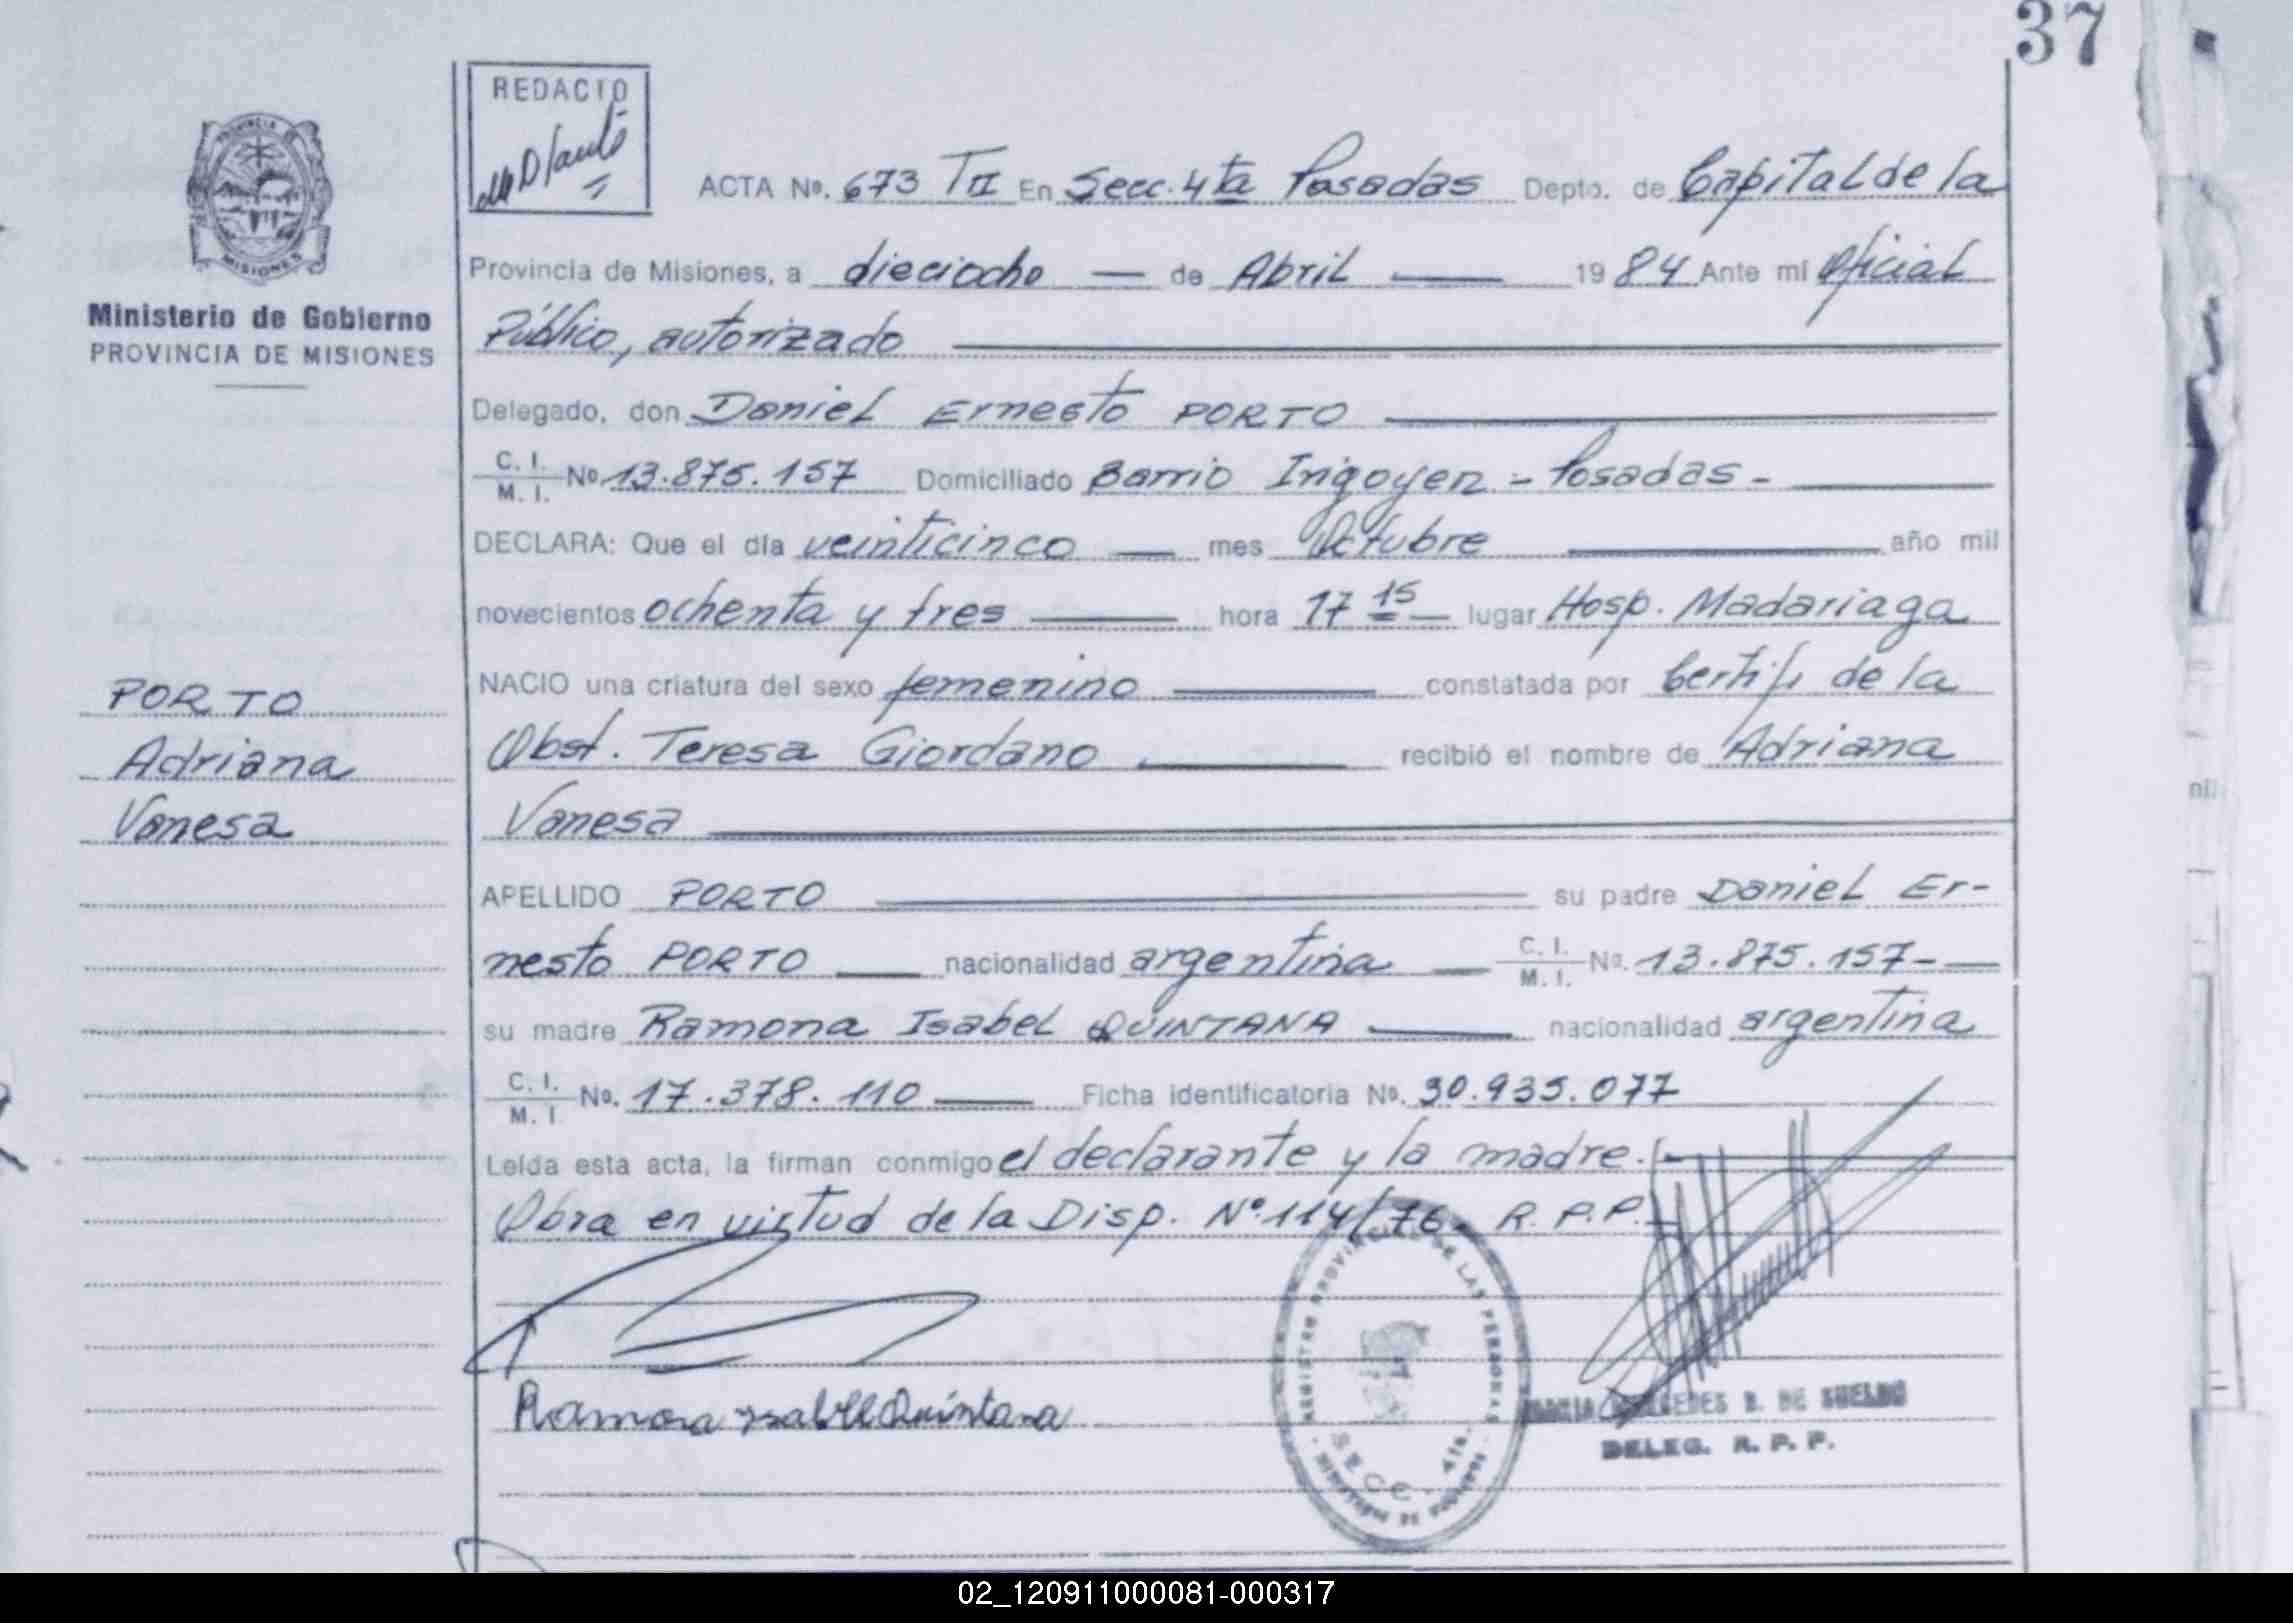 37
REDACTO
PROVINCIA DE
MISIONES
Ministerio de Gobierno
PROVINCIA DE MISIONES
ACTA Nº. 673 TII En Secc. 4ta Posadas Depto. de Capital de la
Provincia de Misiones, a dieciocho — de Abril — 1984 Ante mí Oficial
Público, autorizado
Delegado, don Daniel Ernesto PORTO
C. I.
M. I. Nº 13.875.157 Domiciliado Barrio Irigoyen - Posadas -
DECLARA: Que el día veinticinco — mes Octubre — año mil
novecientos ochenta y tres — hora 17 15 — lugar Hosp. Madariaga
NACIO una criatura del sexo femenino — constatada por Certif. de la
Obst. Teresa Giordano — recibió el nombre de Adriana
Vanesa
APELLIDO PORTO — su padre Daniel Er-
nesto PORTO — nacionalidad argentina — C. I.
M. I. Nº. 13.875.157-
su madre Ramona Isabel QUINTANA — nacionalidad argentina
C. I.
M. I. Nº. 17.378.110 — Ficha identificatoria Nº. 30.935.077
Leída esta acta, la firman conmigo el declarante y la madre.
Obra en virtud de la Disp. Nº 114/76. R. P. P.
PORTO
Adriana
Vanesa
Ramona Ysabel Quintana
REGISTRO PROVINCIAL DE LAS PERSONAS
SECC. 4ta.
B. DE SUELDO
DELEG. R. P. P.
nil
02_120911000081-000317